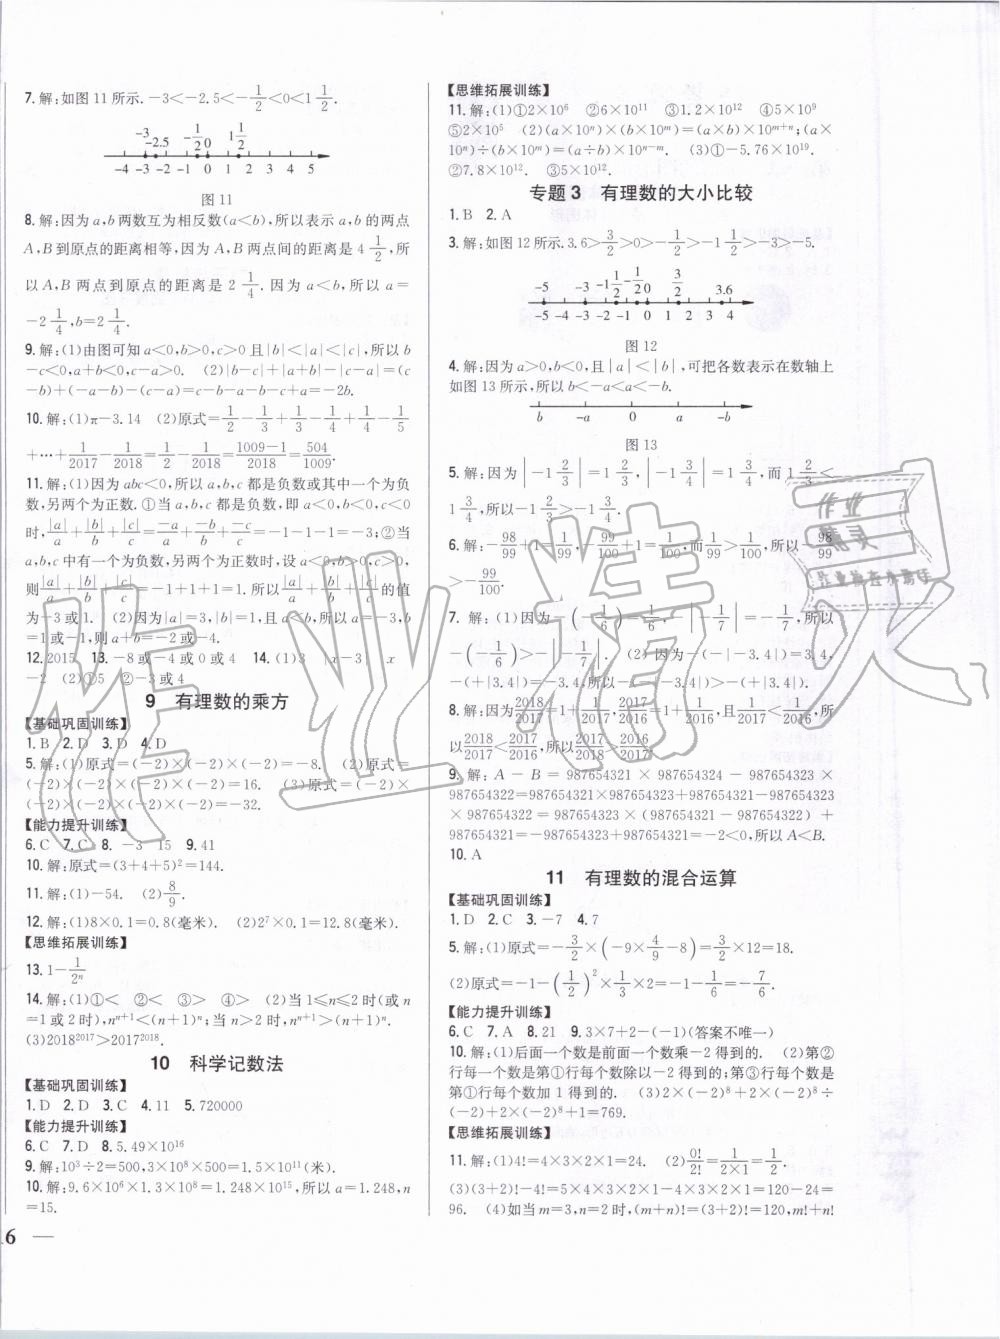 7.解:如图11所示.-3<-2.5<-1/2<0<1 1/2.
-3 -2.5 -1/2 0 1 1/2
-4 -3 -2 -1 0 1 2 3 4 5
图11
8.解:因为a,b两数互为相反数(a<b),所以表示a,b的两点
A,B到原点的距离相等,因为A,B两点间的距离是4 1/2,所
以A,B两点到原点的距离是2 1/4.因为a<b,所以a=
-2 1/4,b=2 1/4.
9.解:(1)由图可知a<0,b>0,c>0且|b|<|a|<|c|,所以b
-c<0,a+b<0,c-a>0. (2)|b-c|+|a+b|-|c-a|=(c
-b)+(-a-b)-(c-a)=c-b-a-b-c+a=-2b.
10.解:(1)π-3.14 (2)原式=1/2-1/3+1/3-1/4+1/4-1/5
+…+1/2017-1/2018=1/2-1/2018=(1009-1)/2018=504/1009.
11.解:(1)因为abc<0,所以a,b,c都是负数或其中一个为负
数,另两个为正数.①当a,b,c都是负数,即a<0,b<0,c<0
时,|a|/a+|b|/b+|c|/c=-a/a+-b/b+-c/c=-1-1-1=-3;②当
a,b,c中有一个为负数,另两个为正数时,设a<0,b>0,c>0,
则|a|/a+|b|/b+|c|/c=-1+1+1=1.所以|a|/a+|b|/b+|c|/c的值
为-3或1. (2)因为|a|=3,|b|=1,且a<b,所以a=-3,b
=1或-1,则a+b=-2或-4.
12.2015 13.-8或-4或0或4 14.(1)3 |x-3| x
-2 (2)①5 ②-3或4
9 有理数的乘方
【基础巩固训练】
1.B 2.D 3.D 4.D
5.解:(1)原式=(-2)×(-2)×(-2)=-8. (2)原式=
(-2)×(-2)×(-2)×(-2)=16. (3)原式=(-2)×
(-2)×(-2)×(-2)×(-2)=-32.
【能力提升训练】
6.C 7.C 8.-3 15 9.41
10.解:原式=(3+4+5)²=144.
11.解:(1)-54. (2)8/9.
12.解:(1)8×0.1=0.8(毫米). (2)2⁷×0.1=12.8(毫米).
【思维拓展训练】
13.1-1/2ⁿ
14.解:(1)①< ②< ③> ④> (2)当1≤n≤2时(或n
=1或2时),nⁿ⁺¹<(n+1)ⁿ;当n>2时,nⁿ⁺¹>(n+1)ⁿ.
(3)2018²⁰¹⁷>2017²⁰¹⁸.
10 科学记数法
【基础巩固训练】
1.D 2.D 3.C 4.11 5.720000
【能力提升训练】
6.C 7.D 8.5.49×10¹⁶
9.解:10³÷2=500,3×10⁸×500=1.5×10¹¹(米).
10.解:9.6×10⁶×1.3×10⁸=1.248×10¹⁵,所以a=1.248,n
=15.
6 —
【思维拓展训练】
11.解:(1)①2×10⁶ ②6×10¹¹ ③1.2×10¹² ④5×10⁹
⑤2×10⁵ (2)(a×10ⁿ)×(b×10ᵐ)=(a×b)×10ᵐ⁺ⁿ;(a×
10ⁿ)÷(b×10ᵐ)=(a÷b)×10ⁿ⁻ᵐ. (3)①-5.76×10¹⁹.
②7.8×10¹². ③5×10¹².
专题3 有理数的大小比较
1.B 2.A
3.解:如图12所示.3.6>3/2>0>-1/2>-1 1/2>-3>-5.
-5 -3 -1 1/2 -1/2 0 3/2 3.6
-5 -4 -3 -2 -1 0 1 2 3 4
图12
4.解:因为a>0,b<0,且|a|<|b|,可把各数表示在数轴上
如图13所示,所以b<-a<a<-b.
b -a 0 a -b
图13
5.解:因为|-1 2/3|=1 2/3,|-1 3/4|=1 3/4,而1 2/3<
1 3/4,所以-1 2/3>-1 3/4.
6.解:-98/99+1=1/99,-99/100+1=1/100,而1/99>1/100,所以-98/99
>-99/100.
7.解:(1)因为-(-1/6)=1/6,-|-1/7|=-1/7,所以
-(-1/6)>-|-1/7|. (2)因为-(-|-3.4|)=3.4,
-(+|3.4|)=-3.4,所以-(-|-3.4|)>-(+|3.4|).
8.解:因为2018/2017=1+1/2017,2017/2016=1+1/2016,且1/2017<1/2016,所
以2018/2017<2017/2016,所以-2018/2017>-2017/2016.
9.解:A-B=987654321×987654324-987654323×
987654322=987654321×987654323+987654321-987654323
×987654322=987654323×(987654321-987654322)+
987654321=-987654323+987654321=-2<0,所以A<B.
10.A
11 有理数的混合运算
【基础巩固训练】
1.D 2.C 3.-7 4.7
5.解:(1)原式=-3/2×(-9×4/9-8)=3/2×12=18.
(2)原式=-1-(1/2)²×1/3×2=-1-1/6=-7/6.
【能力提升训练】
6.C 7.A 8.21 9.3×7+2-(-1)(答案不唯一)
10.解:(1)后面一个数是前面一个数乘-2得到的. (2)第②
行每一个数是第①行每个数除以-2得到的;第③行每个数是
第①行每个数加1得到的. (3)2×(-2)⁸+2×(-2)⁸÷
(-2)+2×(-2)⁸+1=769.
【思维拓展训练】
11.解:(1)4!=4×3×2×1=24. (2)0!/2!=1/(2×1)=1/2.
(3)(3+2)!-4!=5×4×3×2×1-4×3×2×1=120-24=
96. (4)如当m=3,n=2时,(m+n)!=(3+2)!=120,m!+n!
作业精灵
作业
精灵